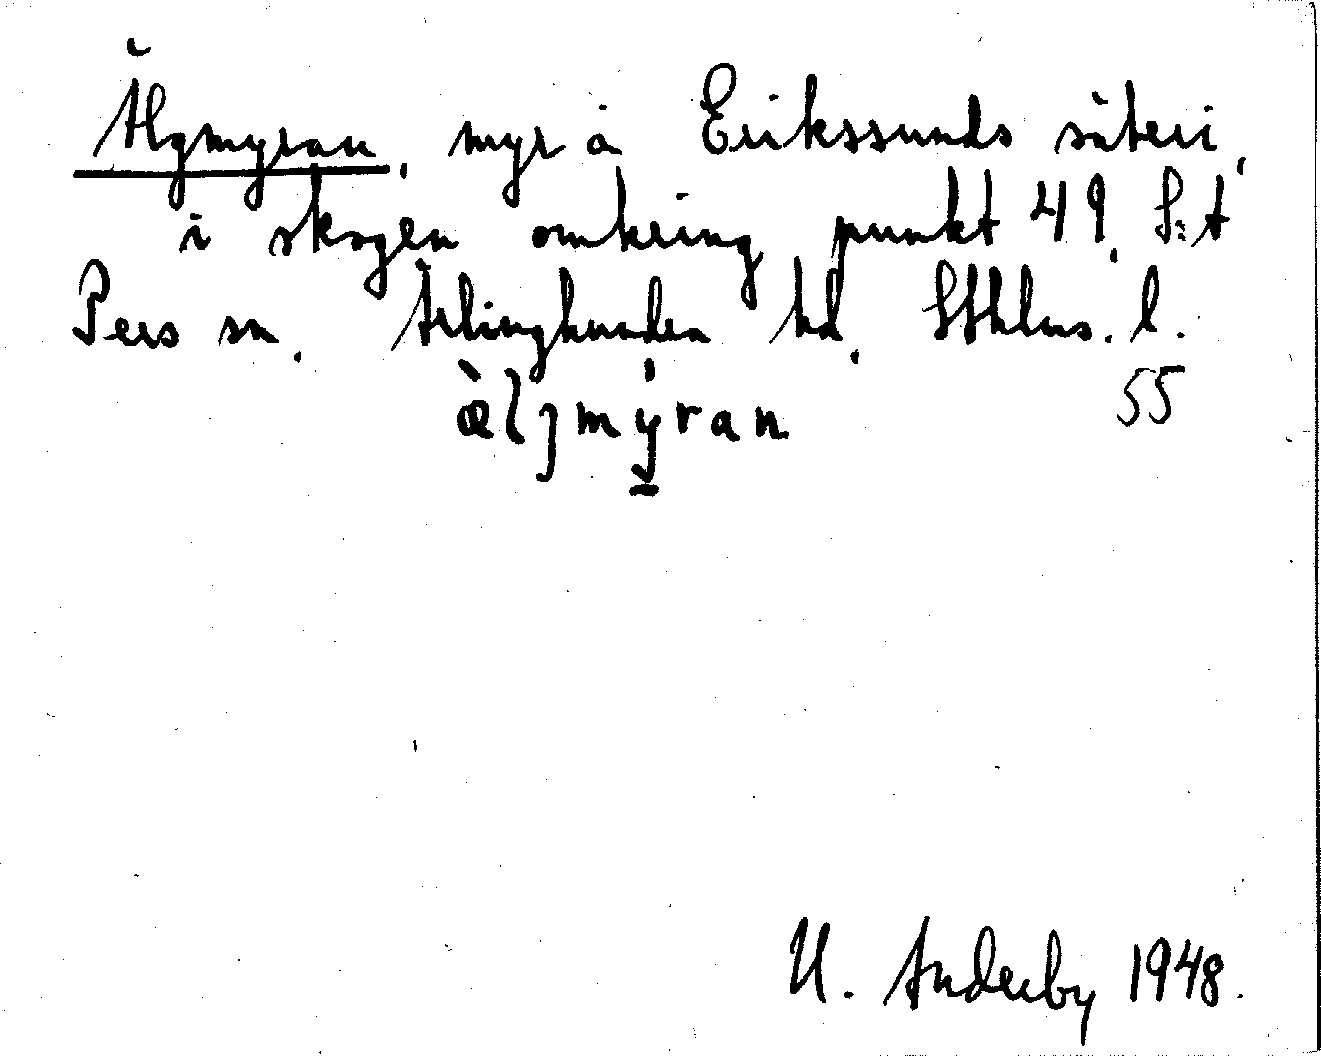 Älgmyran, myr å Erikssunds säteri,
i skogen omkring punkt 49, S:t
Pers sn, Ärlinghundra hd, Sthlms. l.
æ̀ljmý̱ran 55
U. Anderby 1948.